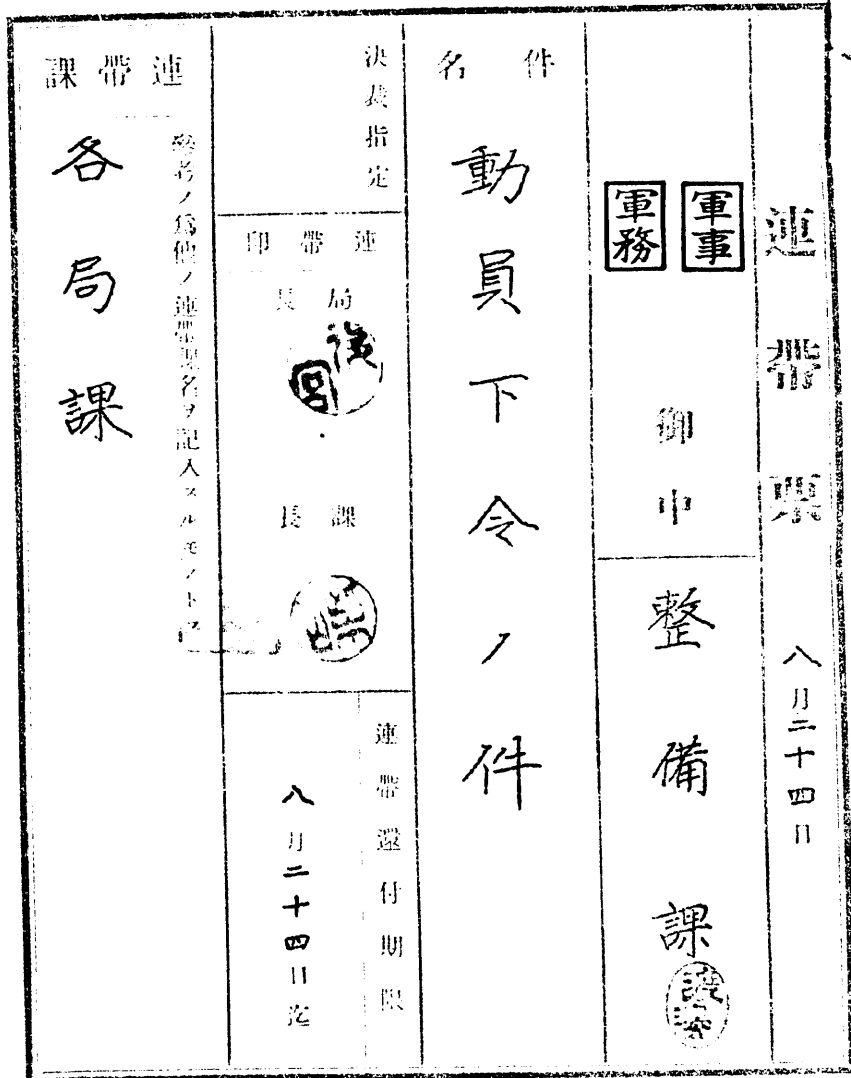 連帯票 八月二十四日
軍事
軍務
御中
整備課
件名
動員下令ノ件
決裁指定
連帯印
局長
後宮
課長
連帯還付期限
八月二十四日迄
連帯課
參考ノ爲他ノ連帶課名ヲ記入スルモノトス
各局課